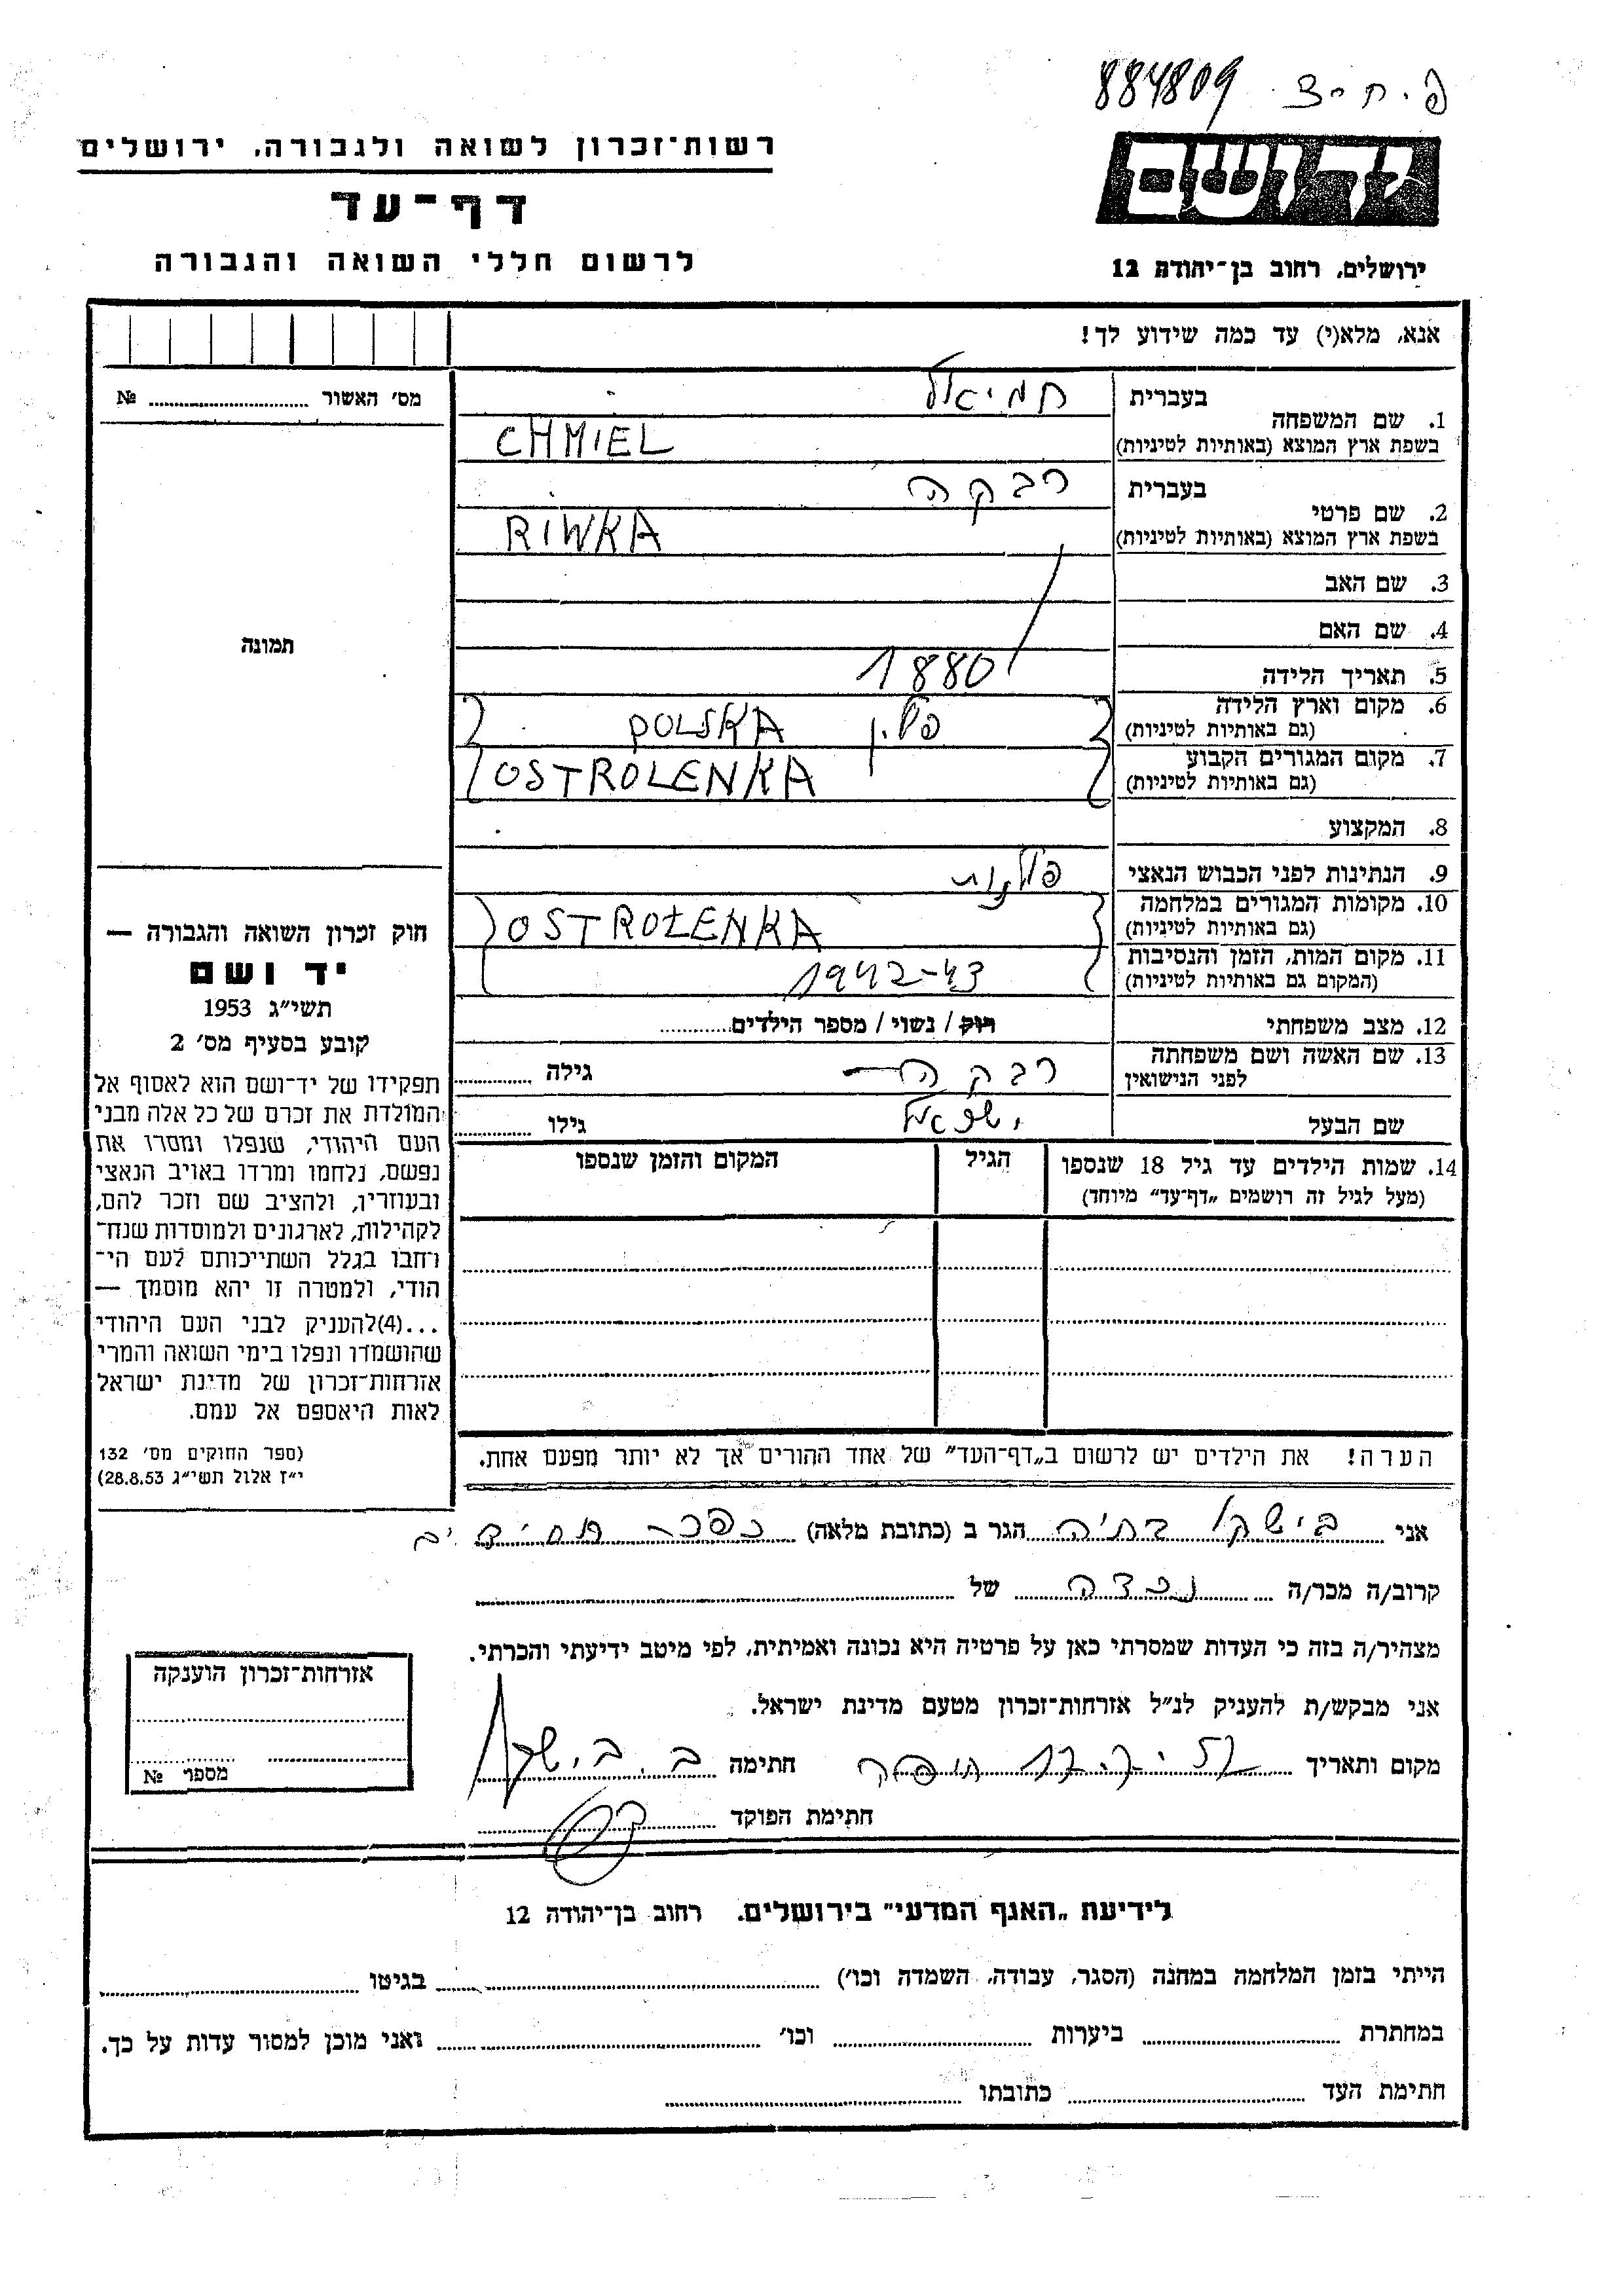 884809 פ.ח-צ
יד ושם
ירושלים, רחוב בן־יהודה 12
רשות־זכרון לשואה ולגבורה, ירושלים
דף־עד
לרשום חללי השואה והגבורה
אנא, מלא(י) עד כמה שידוע לך!
מס׳ האשור № 
תמונה
1. שם המשפחה
בעברית חמיאל
בשפת ארץ המוצא (באותיות לטיניות) CHMIEL
2. שם פרטי
בעברית רבקה
בשפת ארץ המוצא (באותיות לטיניות) RIWKA
3. שם האב
4. שם האם
5. תאריך הלידה 1880
6. מקום וארץ הלידה פולין POLSKA
(גם באותיות לטיניות)
7. מקום המגורים הקבוע OSTROLENKA
(גם באותיות לטיניות)
8. המקצוע
9. הנתינות לפני הכבוש הנאצי פולנית
10. מקומות המגורים במלחמה OSTROŁENKA
(גם באותיות לטיניות)
11. מקום המות, הזמן והנסיבות 1942-43
(המקום גם באותיות לטיניות)
12. מצב משפחתי רוק / נשוי / מספר הילדים
13. שם האשה ושם משפחתה רבקה גילה
לפני הנישואין
שם הבעל ישראל גילו
14. שמות הילדים עד גיל 18 שנספו הגיל המקום והזמן שנספו
(מעל לגיל זה רושמים „דף־עד״ מיוחד)
הערה! את הילדים יש לרשום ב„דף־העד״ של אחד ההורים אך לא יותר מפעם אחת.
חוק זכרון השואה והגבורה —
יד ושם
תשי״ג 1953
קובע בסעיף מס׳ 2
תפקידו של יד־ושם הוא לאסוף אל
המולדת את זכרם של כל אלה מבני
העם היהודי, שנפלו ומסרו את
נפשם, נלחמו ומרדו באויב הנאצי
ובעוזריו, ולהציב שם וזכר להם,
לקהילות, לארגונים ולמוסדות שנח־
רחבו בגלל השתייכותם לעם הי־
הודי, ולמטרה זו יהא מוסמך —
...(4)להעניק לבני העם היהודי
שהושמדו ונפלו בימי השואה והמרי
אזרחות־זכרון של מדינת ישראל
לאות היאספם אל עמם.
(ספר החוקים מס׳ 132
י״ז אלול תשי״ג 28.8.53)
אני בישקו בתיה הגר ב (כתובת מלאה) כפר חסידים
קרוב/ה מכר/ה נכדה של
מצהיר/ה בזה כי העדות שמסרתי כאן על פרטיה היא נכונה ואמיתית, לפי מיטב ידיעתי והכרתי.
אני מבקש/ת להעניק לנ״ל אזרחות־זכרון מטעם מדינת ישראל.
מקום ותאריך חתימה ב. בישקו
חתימת הפוקד
אזרחות־זכרון הוענקה
מספר №
לידיעת „האגף המדעי״ בירושלים, רחוב בן־יהודה 12
הייתי בזמן המלחמה במחנה (הסגר, עבודה, השמדה וכו׳) בגיטו
במחתרת ביערות וכו׳ ואני מוכן למסור עדות על כך.
חתימת העד כתובתו